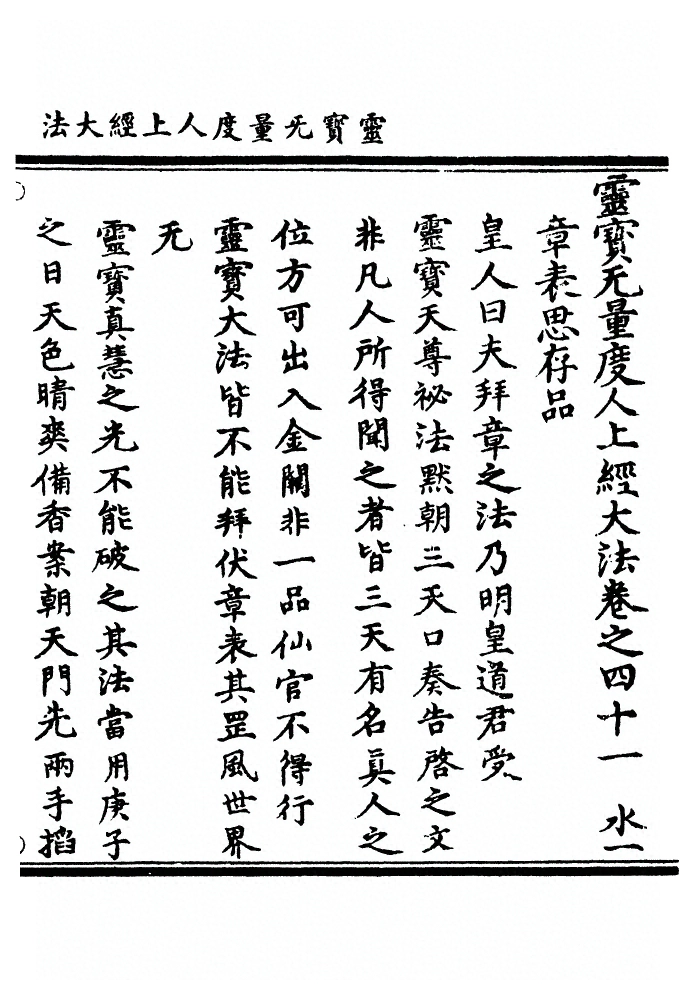 靈寶无量度人上經大法
靈寶无量度人上經大法卷之四十一 水一
章表思存品
皇人曰夫拜章之法乃明皇道君受
靈寶天尊祕法默朝三天口奏告啓之文
非凡人所得聞之者皆三天有名真人之
位方可出入金闕非一品仙官不得行
靈寶大法皆不能拜伏章表其罡風世界
无
靈寶真慧之光不能破之其法當用庚子
之日天色晴爽備香案朝天門先兩手掐